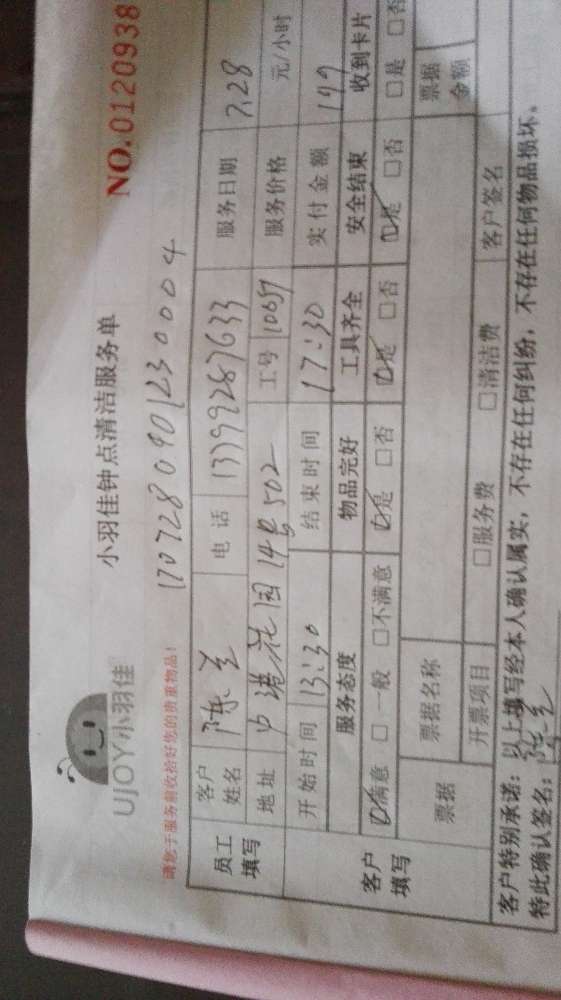 UJOY小羽佳
小羽佳钟点清洁服务单
NO.0120938
请您于服务前收拾好您的贵重物品!
1707280901230004
员工填写
客户姓名 陈兰 电话 13799287633 服务日期 7.28
地址 中港花园14号502 工号 10657 服务价格 元/小时
开始时间 13:30 结束时间 17:30 实付金额 149
客户填写
服务态度 物品完好 工具齐全 安全结束 收到卡片
□满意 □一般 □不满意 □是 □否 □是 □否 □是 □否 □是 □否
票据 票据名称 票据金额
开票项目 □服务费 □清洁费
客户特别承诺:以上填写经本人确认属实,不存在任何纠纷,不存在任何物品损坏。
特此确认签名: 客户签名